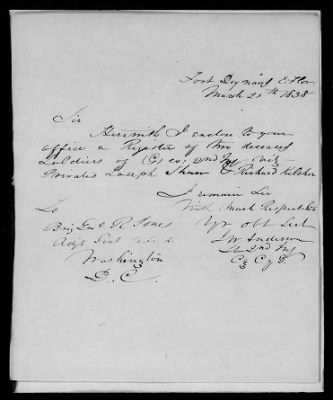 Fort Deynaud E. Flor
March 25th 1838
Sir
Herewith I enclose to your
office a Register of two deceased
Soldiers of Co 2nd Inf viz
Privates Joseph Shaw & Richard Kilcher
I remain Sir
With Much Respect
Yr obt Svt
J W Anderson
Lt 2nd Inf
Cg Co G.
To
Brig Genl R. Jones
Adjt Genl U.S.A.
Washington
D. C.